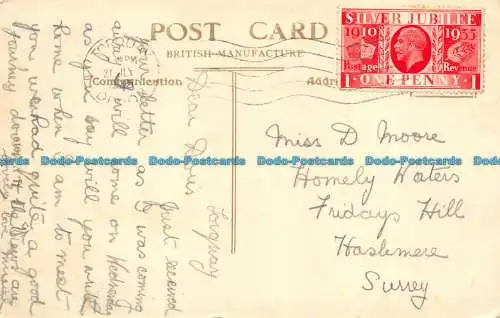 POST CARD
BRITISH MANUFACTURE
Communication
Addre
SILVER JUBILEE
1910 1935
Postage Revenue
1 ONE PENNY 1
Torquay
Dear Doris
Just received
your letter as I was coming
away I will come on Wednesday
as you say will you write
home when I am to meet
you we had quite a good
journey down
Miss D Moore
Homely Waters
Fridays Hill
Haslemere
Surrey
Dodo-Postcards Dodo-Postcards Dodo-Postcards
Dodo-Postcards Dodo-Postcards Dodo-Postcards
Dodo-Postcards Dodo-Postcards Dodo-Postcards